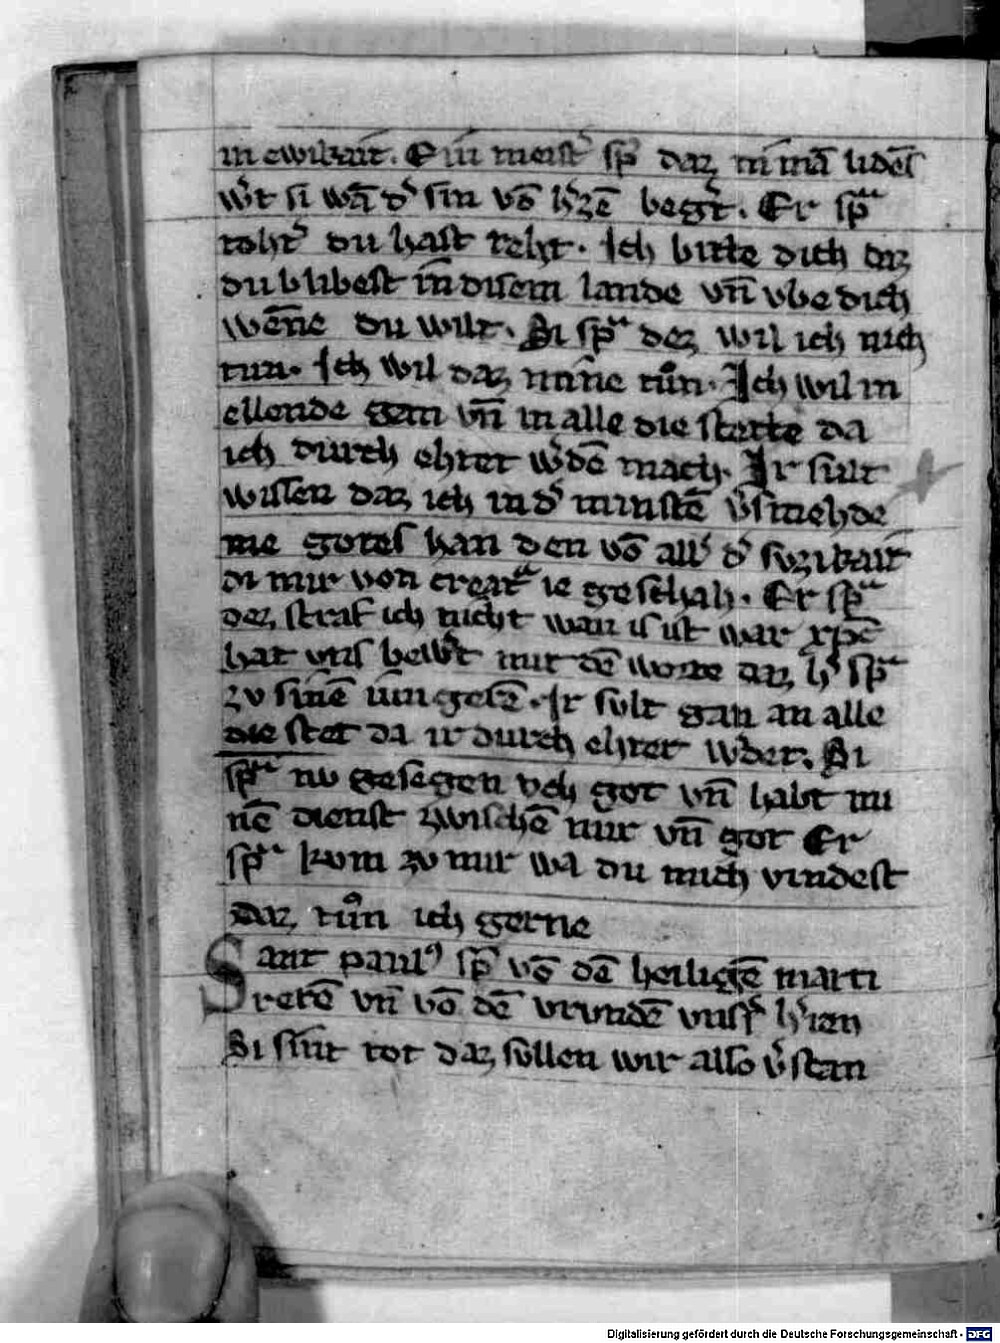 in ewikait. Ein meist͛ sp͛ daz nīmā lidēs
w͛t si wā d͛ sin vō h͛zē beg͛t. Er spͣ
toht͛ du hast reht. Ich bitte dich daz
du blibest in disem lande vn̄ vbe dich
wēne du wilt. Si spͣ dez wil ich nich
tun. Ich wil daz nin̄e tůn. Ich wil in
ellende gem vn̄ in alle die stette da
ich durch ehtet w͛dē mach. Ir sult
wissen daz ich in d͛ minstē v͛smehde
me gotes han den vō all͛ d͛ svzikait
di mir von creatͣ ie geschah. Er spͣ
dez straf ich nicht wan is ist war xp̄c
hat vns bew͛t mit dē worte daz h͛ spͣ
zv sinē iūngerē. Ir svlt gan an alle
die stet da ir durch ehtet w͛det. Si
spͣ nv gesegen vch got vn̄ habt mi
nē dienst zwischē mir vn̄ got Er
spͣ kvm zv mir wa du mich vindest
Daz tůn ich gerne
Sant paulꝰ sp͛ vō dē heiligē marti
rerē vn̄ vō dē vrvndē vnss͛ h͛ren
Si sint tot daz svllen wir also v͛stan
Digitalisierung gefördert durch die Deutsche Forschungsgemeinschaft - DFG